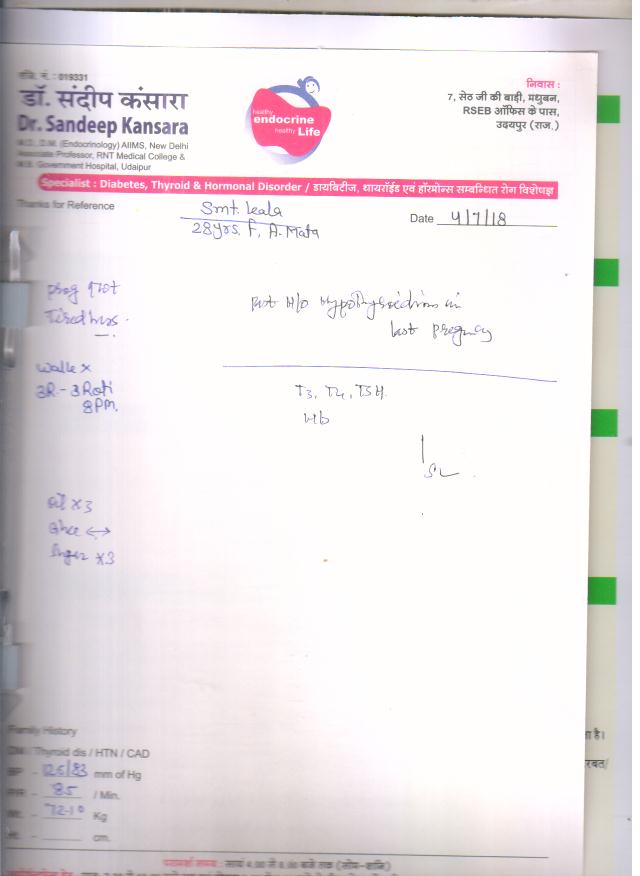 रजि. नं. : 019331
डॉ. संदीप कंसारा
Dr. Sandeep Kansara
M.D., D.M. (Endocrinology) AIIMS, New Delhi
Associate Professor, RNT Medical College &
M.B. Government Hospital, Udaipur
healthy
endocrine
healthy Life
निवास :
7, सेठ जी की बाड़ी, मधुबन,
RSEB ऑफिस के पास,
उदयपुर (राज.)
Specialist : Diabetes, Thyroid & Hormonal Disorder / डायबिटीज, थायरॉईड एवं हॉरमोन्स सम्बन्धित रोग विशेषज्ञ
Thanks for Reference
Smt. Leala
28yrs. F, A. Mata
Date 4/7/18
Tiredness.
H/o Hypothyroidism in
last pregnancy
Walk x
3R - 3Roti
8PM.
T3, T4, TSH.
Hb
Oil x3
Ghee ↔
Sugar x3
Family History
DM / Thyroid dis / HTN / CAD
BP - 125/83 mm of Hg
85 / Min.
Wt. - 72.10 Kg
Ht. - cm.
परामर्श समय : सायं 4.00 से 8.00 बजे तक (सोम-शनि)
ता है।
रबत/